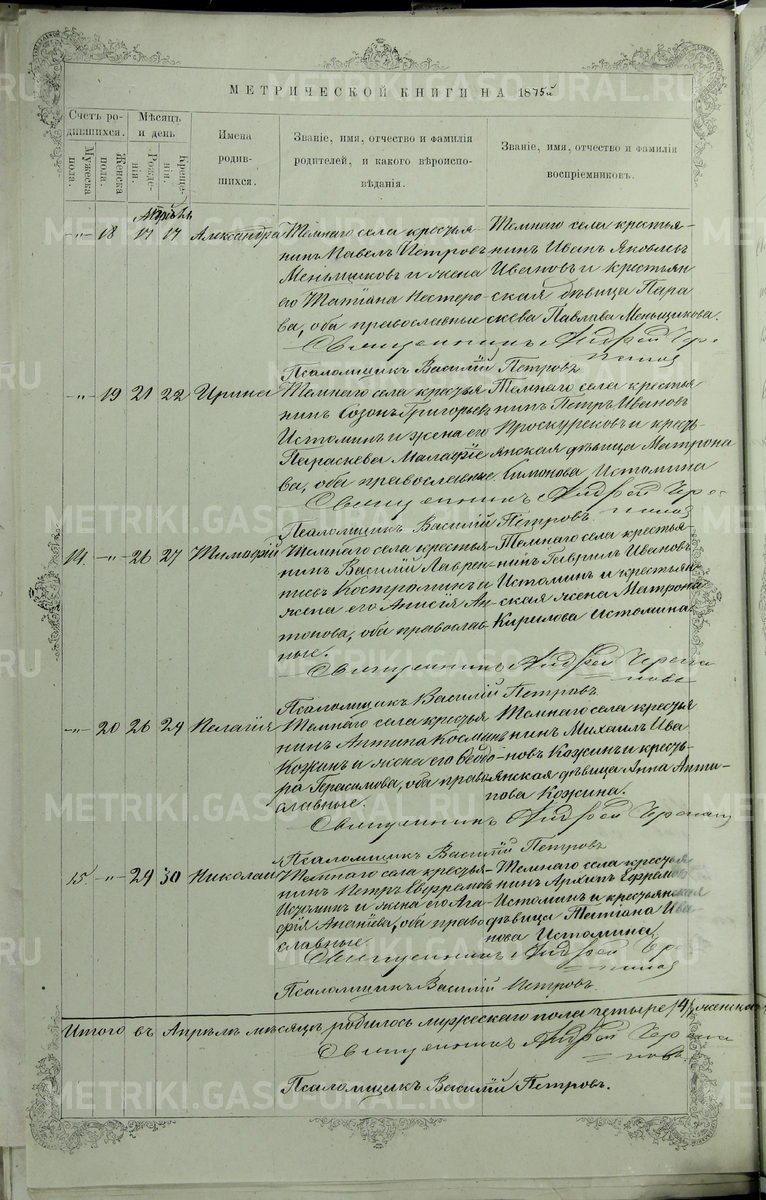 МЕТРИЧЕСКОЙ КНИГИ НА 1875й
Счетъ родившихся.
Мужеска пола.
Женска пола.
Мѣсяцъ и день
Рожденія.
Крещенія.
Имена родившихся.
Званіе, имя, отчество и фамилія родителей, и какого вѣроисповѣданія.
Званіе, имя, отчество и фамилія воспріемниковъ.
Апрѣль
-"- 18 17 17 Александра
Темнаго села крестья-
нинъ Павелъ Петровъ
Меньщиковъ и жена
его Татіана Нестеро-
ва, оба православные
Темнаго села крестья-
нинъ Иванъ Яковлевъ
Ивановъ и крестьян-
ская дѣвица Пара-
скева Павлова Меньщикова.
Священникъ Андрей Чере-
пановъ
Псаломщикъ Василій Петровъ
-"- 19 21 22 Ирина
Темнаго села крестья
нинъ Созонъ Григорьевъ
Истоминъ и жена его
Параскева Малафіе
ва, оба православные.
Темнаго села крестья
нинъ Петръ Ивановъ
Проскуряковъ и кресть-
янская дѣвица Матрона
Истомина
Священникъ Андрей Чере-
пановъ
Псаломщикъ Василій Петровъ.
14. -"- 26 27 Тимофій
Темнаго села крестья-
нинъ Василій Лаврен-
тьевъ Костроминъ и
жена его Анисія Ан-
тонова, оба православ-
ные.
Темнаго села крестья-
нинъ Гавріилъ Ивановъ
Истоминъ и крестьян-
ская жена Матрона
Кирилова Истомина
Священникъ Андрей Черепа
новъ
Псаломщикъ Василій Петровъ.
-"- 20 26 29 Пелагія
Темнаго села крестья
нинъ Антипа Косминъ
Кожинъ и жена его Ѳедо-
ра Герасимова, оба право
славные.
Темнаго села крестья
нинъ Михаилъ Ива
новъ Кожинъ и кресть-
янская дѣвица Анна Анти-
пова Кожина.
Священникъ Андрей Черепан
Псаломщикъ Василій Петровъ
15. -"- 29 30 Николай
Темнаго села крестья-
нинъ Петръ Евфремовъ
Истоминъ и жена его Ага-
фія Ананіева, оба право
славные.
Темнаго села крестья
нинъ Архипъ Ефремовъ
Истоминъ и крестьянская
дѣвица Татіана Ива
нова Истомина
Священникъ Андрей Чере
пановъ
Псаломщикъ Василій Петровъ
Итого въ Апрѣлѣ мѣсяцѣ родилось мужескаго пола четыре /4/, женскаго
Священникъ Андрей Черепа
новъ.
Псаломщикъ Василій Петровъ.
METRIKI.GASOURAL.RU